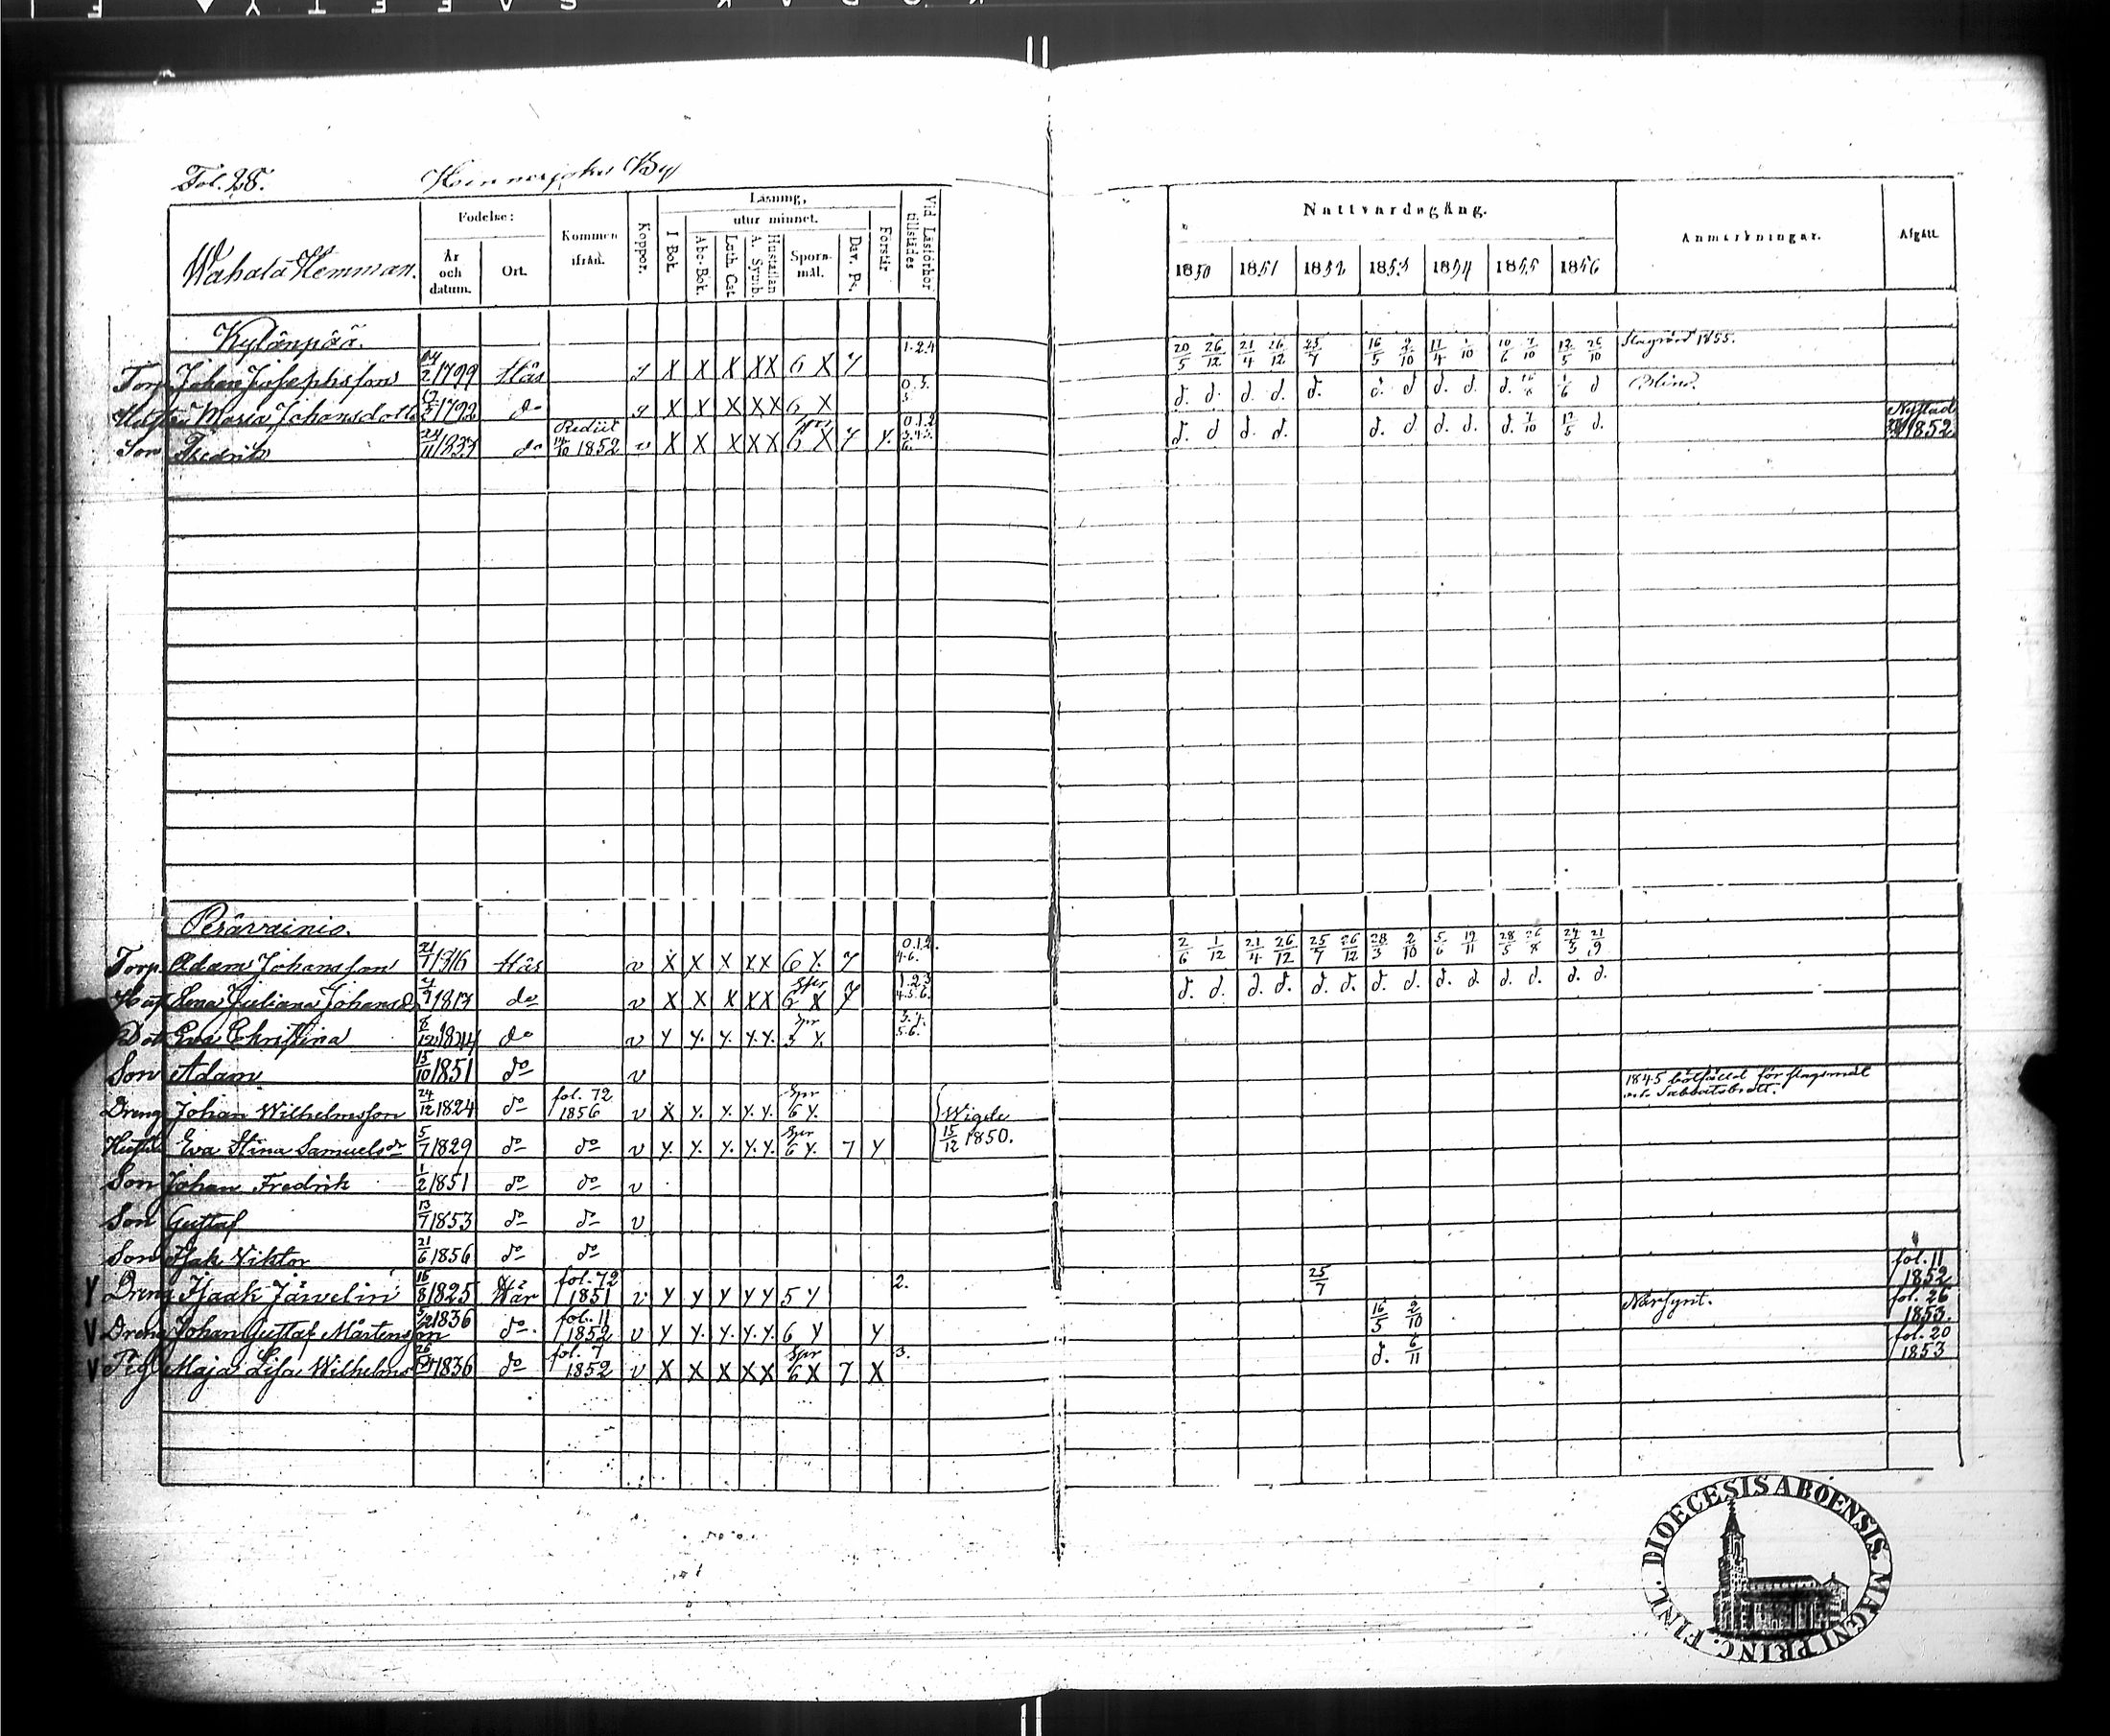 Fol. 28. Hinnerjoki By
Wahala Hemman.
Födelse:
År och datum.
Ort.
Kommen ifrån.
Koppor.
Läsning,
utur minnet.
I Bok.
Abc-Bok.
Luth. Cat.
Hustaflan A. Symb.
Spörsmål.
Dav. Ps.
Förstår
Vid Läsförhör tillstädes
Nattvardsgång.
1850 1851 1852 1853 1854 1855 1856
Anmärkningar.
Afgått.
Kylänpää.
Torp. Johan Josephsson 1799 X X X XX 6 X 7 1.2.4 20/5 26/12 21/4 26/12 25/7 16/5 2/10 17/4 1/10 10/6 7/10 12/5 26/10 1855.
Hustru Maria Johansdotter do X X X XX 6 X d. d. d. d. d. d. d d. d. d. 1/6 d Blind.
Son Fredrik do Rediit 1852 v X X X XX 6 X 7 Y. d. d d. d. d. d d. d. d. 7/10 12/5 d. Nystad 1852
Perävainio.
Torp. Adam Johansson 1816 v X X X XX 6 Y. 7 0.1.2. 4.6. 2/6 1/12 21/4 26/12 25/7 26/12 28/3 2/10 5/6 19/11 28/5 26/8 24/3 21/9
Hust Lena Juliana Johansd 1817 do v X X X XX Spr 6 X 7 1.2.3 4.5.6. d. d. d. d. d. d. d. d. d. d. d. d. d. d.
Dot Eva Christina 8/12 1844 do v Y Y. Y. Y.Y. Spr 5 Y. 5.6.
Son Adam 15/10 1851 do v
Dreng Johan Wilhelmsson 24/12 1824 do fol. 72 1856 v X Y. Y. Y.Y. Spr 6 Y. Wigde 1845 bötfälld för slagsmål och Sabbatsbrott.
Hustru Eva Stina Samuelsdr 5/7 1829 do do v Y. Y. Y. Y.Y. Spr 6 Y. 7 Y 15/12 1850.
Son Johan Fredrik 1/2 1851 do do v
Son Gustaf 13/7 1853 do do v
Son Isak Viktor 21/6 1856 do do
Y Dreng Isaak Järvelin 16/8 1825 fol. 72 1851 v Y Y Y Y Y 5 Y 2. 25/7 fol. 11 1852
V Dreng Johan Gustaf Mårtensson 1836 do. fol. 11 1852 v Y Y. Y. Y.Y. 6 Y Y 16/5 2/10 Närsynt. fol. 26 1853.
V Pig. Maja Lisa Wilhelmsdr 1836 do fol. 7 1852 v X X X XX Spr 6 X 7 X 3. d. 6/11 fol. 20 1853
DIOECESIS ABOENSIS. MAGNI PRINC. FINL.